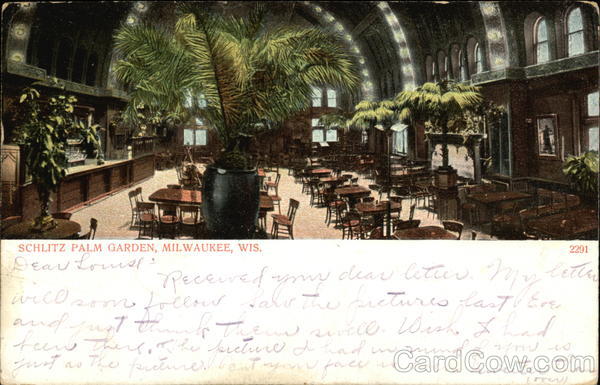 SCHLITZ PALM GARDEN, MILWAUKEE, WIS. 2291
Dear Louise:
Received your dear letter. My letter
will soon follow saw the pictures last Eve
and just think them swell. Wish I had
been there. The picture I had in mind of you is
just as the picture. but your face
CardCow.com
(over)